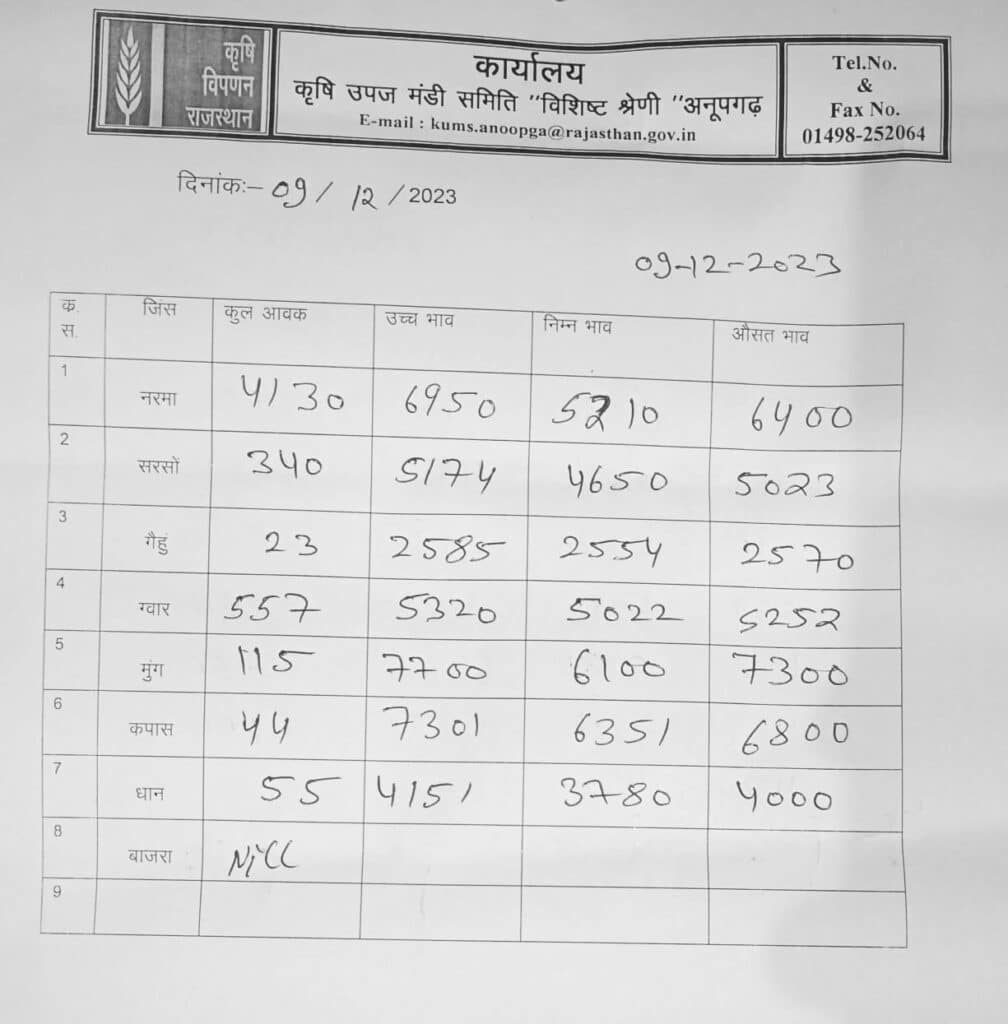 कृषि
विपणन
राजस्थान
कार्यालय
कृषि उपज मंडी समिति "विशिष्ट श्रेणी "अनूपगढ़
E-mail : kums.anoopga@rajasthan.gov.in
Tel.No.
&
Fax No.
01498-252064
दिनांकः– 09/ 12 /2023
09-12-2023
क. स. जिंस कुल आवक उच्च भाव निम्न भाव औसत भाव
1 नरमा 4130 6950 5210 6400
2 सरसों 340 5174 4650 5023
3 गैहुं 23 2585 2554 2570
4 ग्वार 557 5320 5022 5252
5 मुंग 115 7700 6100 7300
6 कपास 44 7301 6351 6800
7 धान 55 4151 3780 4000
8 बाजरा Nill
9